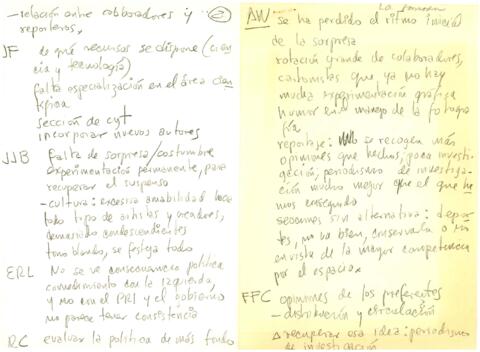 - relación entre colaboradores y
reporteros.
②
JF de qué recursos se dispone (cien
cia y tecnología)
falta especialización en el área cien
tífica
sección de cyt
incorporar nuevos autores
JJB falta de sorpresa/costumbre
experimentación permanente, para
recuperar el suspenso
- cultura: excesiva amabilidad hace
todo tipo de artistas y creadores,
demasiado condescendientes
tono blando, se festeja todo
ERL No se ve consecuencia política
comedimiento con la izquierda,
y no con el PRI y el gobierno
no parece tener consistencia
RC evaluar la política de más fondo
La
AW se ha perdido el ritmo inicial
de la sorpresa
rotación grande de colaboradores,
cartonistas que ya no hay
mucha experimentación gráfica
humor en el manejo de la fotogra
fía
reportaje: no se recogen más
opiniones que hechos, poca investi-
gación, periodismo de investiga-
ción mucho mejor que el que he
mos conseguido
secciones sin alternativa: depor-
tes, no va bien, conservarla o no
en vista de la mayor competencia
por el espacio.
FFC opiniones de los preferentes
- distribución y circulación
Δ recuperar esa idea: periodismo
de investigación